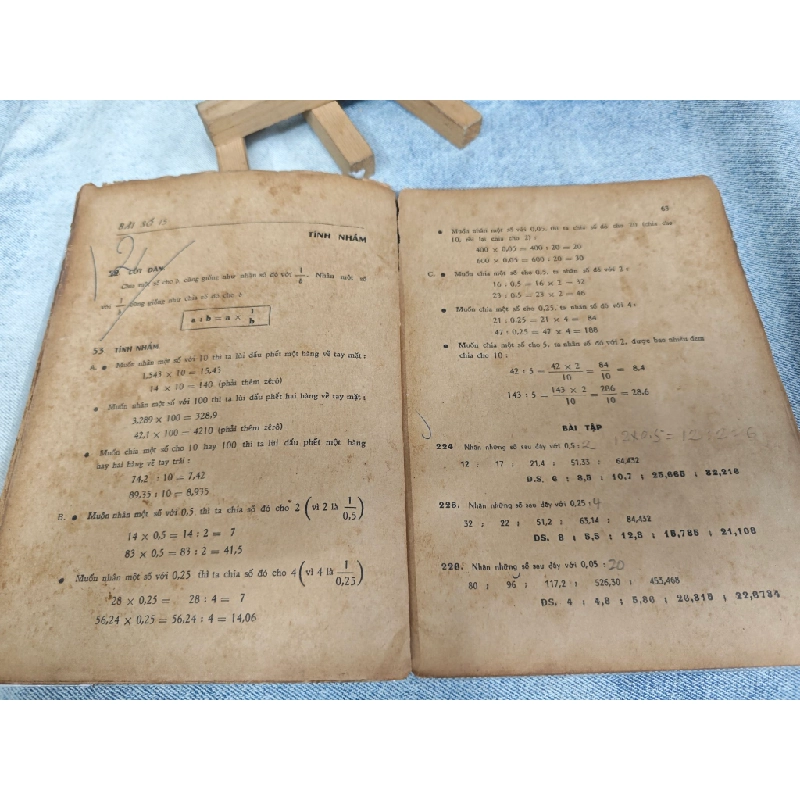 BÀI SỐ 15
TÍNH NHẨM
LỜI DẶN
Chia một số cho b cũng giống như nhân số đó với 1/b. Nhân một số
với 1/b cũng giống như chia số đó cho b
a : b = a × 1/b
53 TÍNH NHẨM
A. • Muốn nhân một số với 10 thì ta lùi dấu phết một hàng về tay mặt :
1,543 × 10 = 15,43
14 × 10 = 140. (phải thêm zêrô)
• Muốn nhân một số với 100 thì ta lùi dấu phết hai hàng về tay mặt :
3,289 × 100 = 328,9
42,1 × 100 = 4210 (phải thêm zêrô)
• Muốn chia một số cho 10 hay 100 thì ta lùi dấu phết một hàng
hay hai hàng về tay trái :
74,2 : 10 = 7,42
89,35 : 10 = 8,935
B. • Muốn nhân một số với 0,5 thì ta chia số đó cho 2 (vì 2 là 1/0,5)
14 × 0,5 = 14 : 2 = 7
83 × 0,5 = 83 : 2 = 41,5
• Muốn nhân một số với 0,25 thì ta chia số đó cho 4 (vì 4 là 1/0,25)
28 × 0,25 = 28 : 4 = 7
56,24 × 0,25 = 56,24 : 4 = 14,06
63
• Muốn nhân một số với 0,05, thì ta chia số đó cho 20 (chia cho
10, rồi lại chia cho 2) :
400 × 0,05 = 400 : 20 = 20
600 × 0,05 = 600 : 20 = 30
C. • Muốn chia một số cho 0,5, ta nhân số đó với 2 :
16 : 0,5 = 16 × 2 = 32
23 : 0,5 = 23 × 2 = 46
• Muốn chia một số cho 0,25, ta nhân số đó với 4 :
21 : 0,25 = 21 × 4 = 84
47 : 0,25 = 47 × 4 = 188
• Muốn chia một số cho 5, ta nhân số đó với 2, được bao nhiêu đem
chia cho 10 :
42 : 5 = 42 × 2/10 = 84/10 = 8,4
143 : 5 = 143 × 2/10 = 286/10 = 28,6
BÀI TẬP
224. Nhân những số sau đây với 0,5 : 2 12×0,5 = 12 : 2 = 6
12 ; 17 ; 21,4 ; 51,33 ; 64,432
ĐS. 6 ; 8,5 ; 10,7 ; 25,665 ; 32,216
225. Nhân những số sau đây với 0,25 : 4
32 ; 22 ; 51,2 ; 63,14 ; 84,432
ĐS. 8 ; 5,5 ; 12,8 ; 15,785 ; 21,108
226. Nhân những số sau đây với 0,05 : 20
80 ; 96 ; 117,2 ; 526,30 ; 453,468
ĐS. 4 ; 4,8 ; 5,86 ; 26,315 ; 22,6734